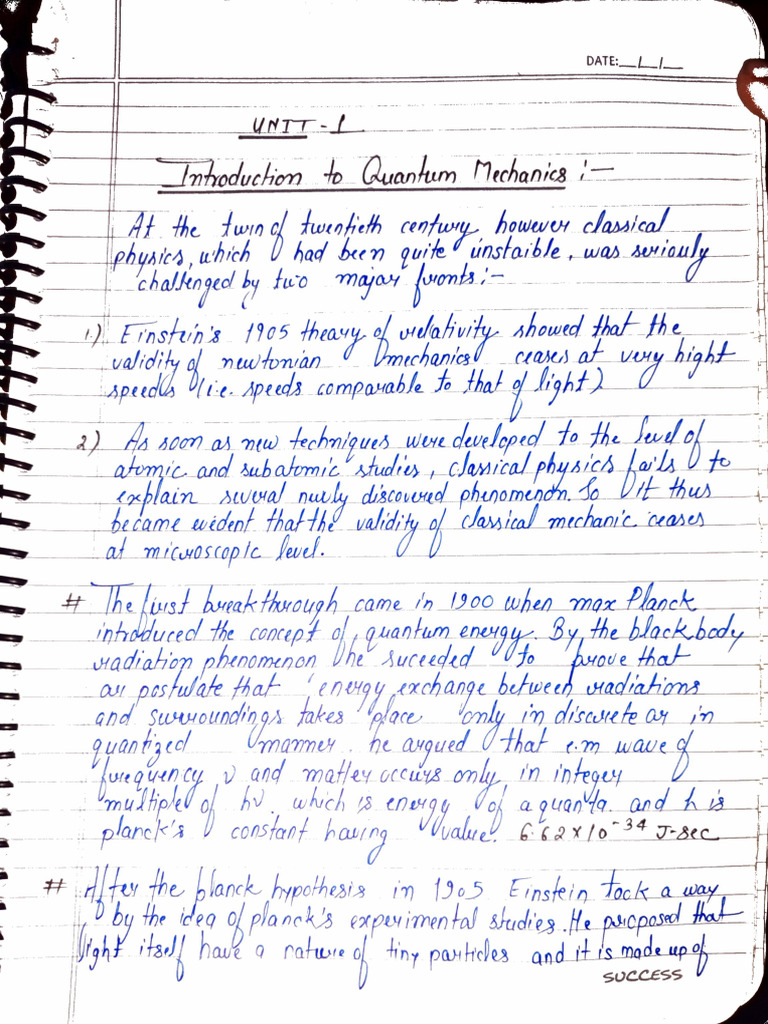 DATE:__/__/__
UNIT - 1
Introduction to Quantum Mechanics :-
At the twin of twentieth century however classical
physics, which had been quite unstaible, was seriouly
challenged by two majar fronts :-
1.) Einstein's 1905 theory of relativity showed that the
validity of newtonian mechanics ceases at very hight
speeds (i.e. speeds comparable to that of light)
2) As soon as new techniques were developed to the level of
atomic and subatomic studies, classical physics fails to
explain several nuwly discovered phenomenon. So it thus
became evident that the validity of classical mechanic ceases
at microscopic level.
# The first breakthrough came in 1900 when max Planck
introduced the concept of quantum energy. By the blackbody
radiation phenomenon he suceeded to prove that
or postulate that energy exchange between radiations
and surroundings takes place only in discrete or in
quantized manner. he argued that e.m wave of
frequency ν and matter occurs only in integer
multiple of hν. which is energy of a quanta. and h is
planck's constant having value. 6.62×10⁻³⁴ J-sec
# After the planck hypothesis in 1905 Einstein tock a way
by the idea of planck's experimental studies. He proposed that
light itself have a nature of tiny particles and it is made up of
SUCCESS